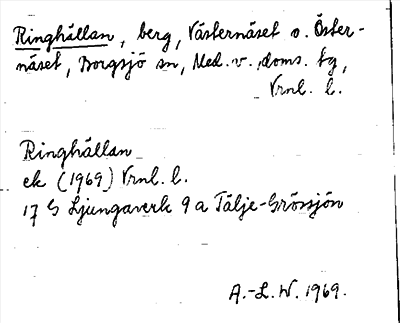 Ringhällan, berg, Västernäset o. Öster-
näset, Borgsjö sn, Med. v. doms. tg,
Vrnl. l.
Ringhällan
ek (1969) Vrnl. l.
17 G Ljungaverk 9 a Tälje-Grössjön
A.-L. W. 1969.